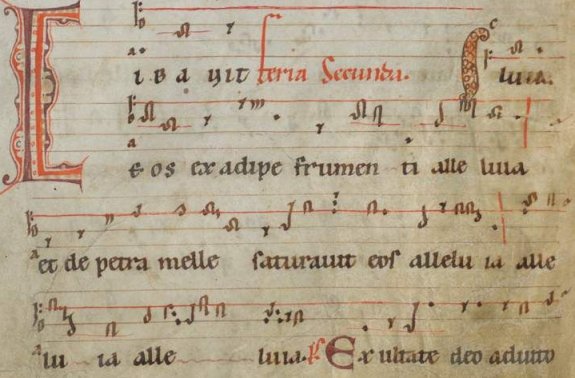 CIBAuit feria Secunda. A luia.
eos ex adipe frumen ti alle luia
et de petra melle saturauit eos allelu ia alle
lu ia alle luia. Ps Exultate deo adiuto